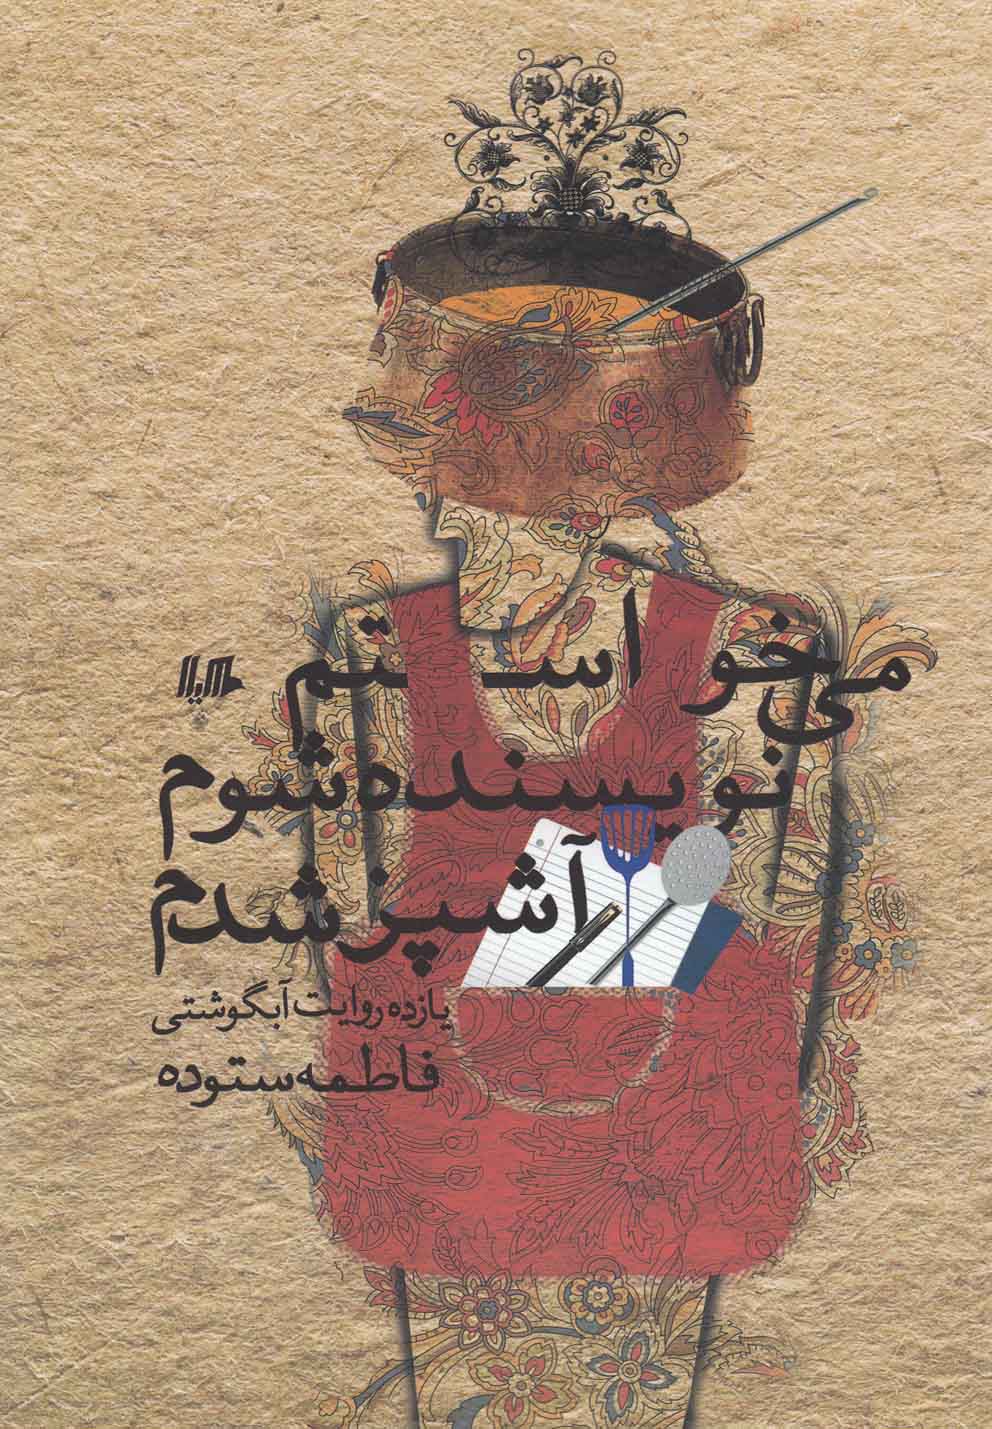 می‌خواستم
نویسنده شوم
آشپز شدم
یازده روایت آبگوشتی
فاطمه ستوده
هیلا